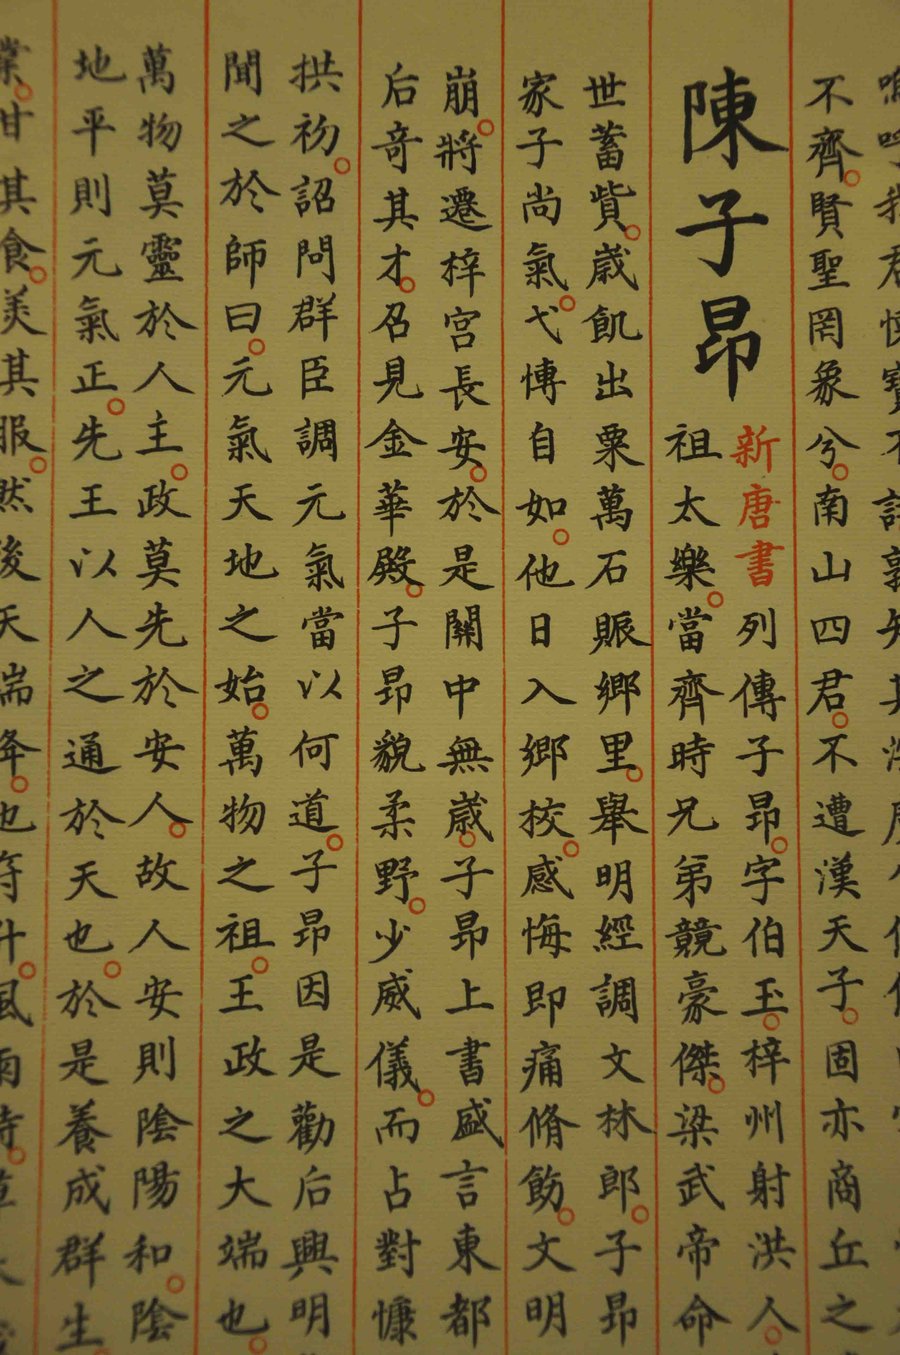 嗚呼我君懷寶不試孰知其
不齊。賢聖罔象兮。南山四君。不遭漢天子。固亦商丘之
陳子昂 新唐書 列傳子昂。字伯玉。梓州射洪人。
祖太樂。當齊時兄弟競豪傑。梁武帝命
世蓄貲。歲飢出粟萬石賑鄉里。舉明經調文林郎。子昂
家子尚氣。弋博自如。他日入鄉校。感悔即痛脩飭。文明
崩。將遷梓宮長安。於是關中無歲。子昂上書盛言東都
后奇其才。召見金華殿。子昂貌柔野。少威儀。而占對慷
拱初。詔問群臣調元氣當以何道。子昂因是勸后興明
聞之於師曰。元氣天地之始。萬物之祖。王政之大端也。
萬物莫靈於人主。政莫先於安人。故人安則陰陽和。陰
地平則元氣正。先王以人之通於天也。於是養成群生
業。甘其食。美其服。然後天瑞降。地符升。風雨時。草木